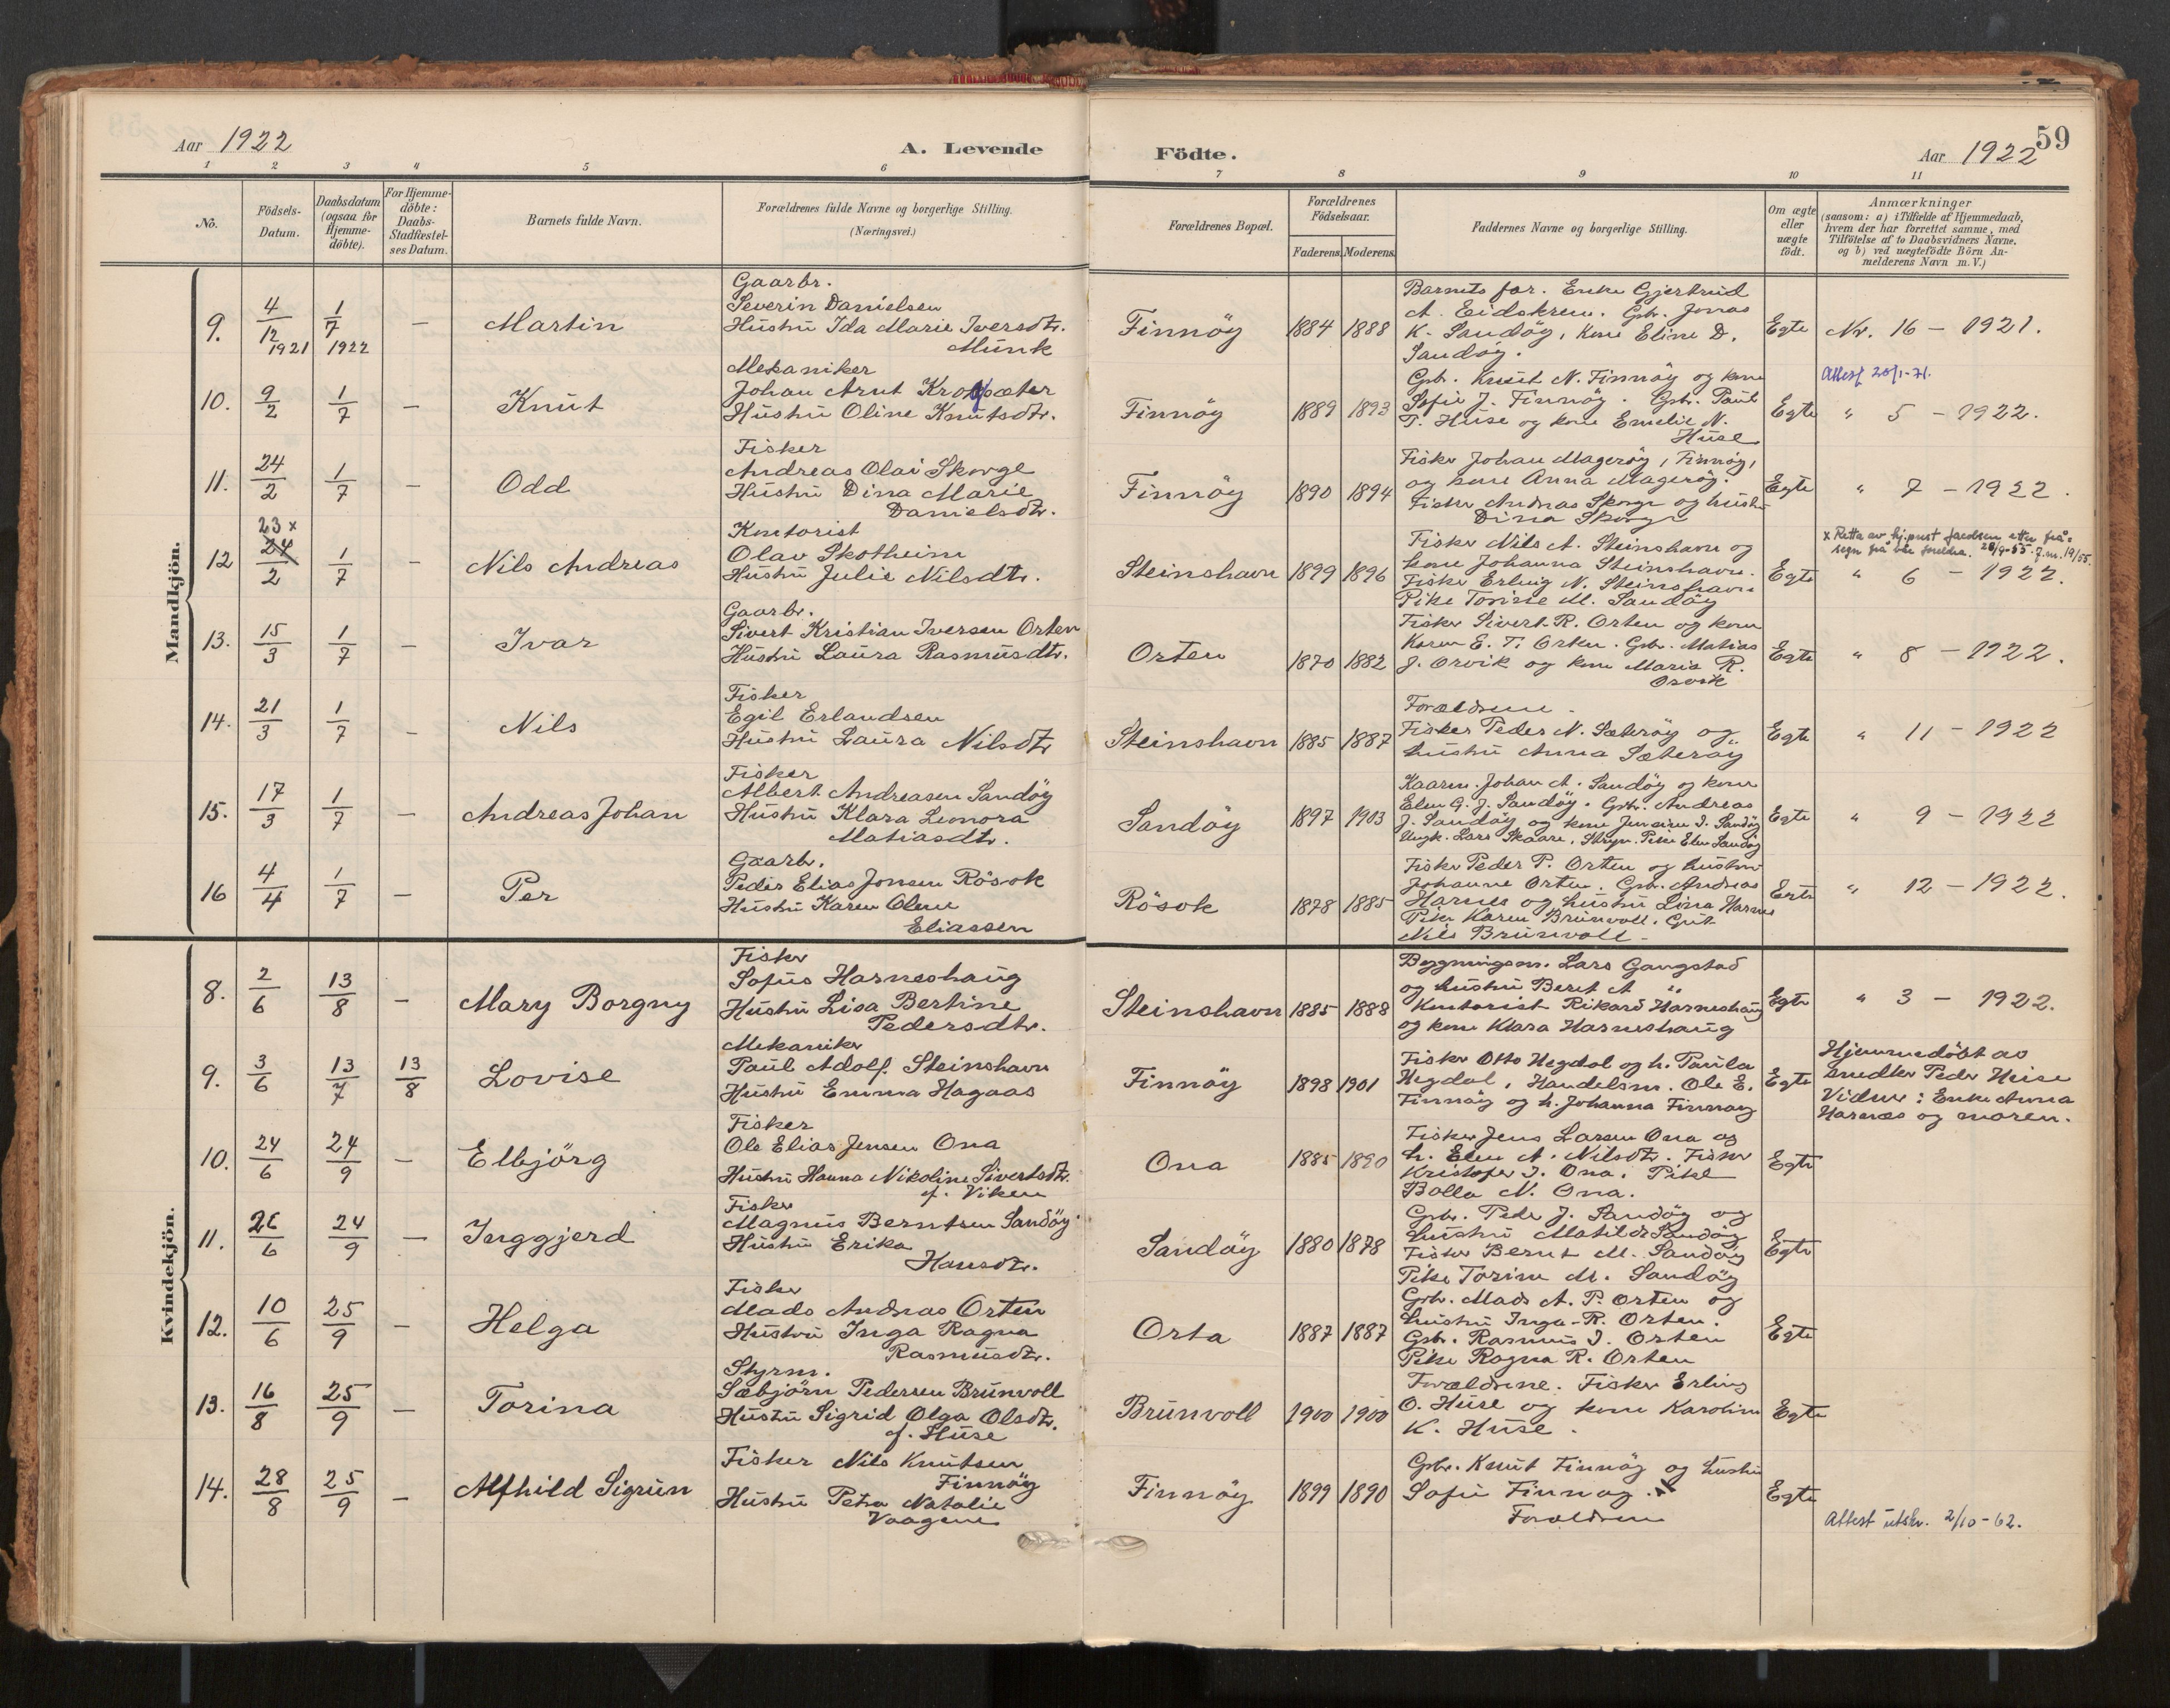 Aar 1922
A. Levende
Födte.
Aar 1922
59
1 2 3 4 5 6 7 8 9 10 11
No.
Födsels-
Datum.
Daabsdatum
(ogsaa for
Hjemme-
döbte).
For Hjemme-
döbte:
Daabs-
Stadfæstel-
ses Datum.
Barnets fulde Navn.
Forældrenes fulde Navne og borgerlige Stilling.
(Næringsvei.)
Forældrenes Bopæl.
Forældrenes
Födselsaar.
Faderens. Moderens.
Faddernes Navne og borgerlige Stilling.
Om ægte
eller
uægte
födt.
Anmærkninger
(saasom: a) i Tilfælde af Hjemmedaab,
hvem der har forrettet samme, med
Tilföielse af to Daabsvidners Navne.
og b) ved uægtefödte Börn An-
melderens Navn m.V.)
Mandkjön.
9. 4/12 1921 1/7 1922 — Martin
Gaarbr.
Severin Danielsen
Hustru Ida Marie Iversdtr.
Munk
Finnöy 1884 1888
Barnets far. Enke Gjertrud
A. Eidskrem. Gbr. Jonas
K. Sandöy, kone Eline D.
Sandöy.
Egte Nr. 16 - 1921.
10. 9/2 1/7 — Knut
Mekaniker
Johan Arnt Krogsæter
Hustru Oline Knutsdtr.
Finnöy 1889 1893
Gbr. Knut N. Finnöy og kone
Sofie J. Finnöy. Gbr. Paul
P. Huse og kone Emelie N.
Huse
Egte
Attest 28/1-71.
" 5 - 1922.
11. 24/2 1/7 — Odd
Fisker
Andreas Olai Skorge
Hustru Dina Marie
Danielsdtr.
Finnöy 1890 1894
Fisker Johan Mageröy, Finnöy,
og kone Anna Mageröy.
Fisker Andreas Skorge og hustru
Dina Skorge
Egte " 7 - 1922.
12 23 x 24/2 1/7 — Nils Andreas
Kontorist
Olav Skotheim
Hustru Julie Nilsdtr.
Steinshavn 1899 1896
Fisker Nils A. Steinshavn og
kone Johanna Steinshavn.
Fisker Erling N. Steinshavn
Pike Torine M. Sandöy
Egte
x Retta av hj.prest Jacobsen etter frå-
segn frå foreldra. 28/9-55. J.nr. 19/55.
" 6 - 1922.
13. 15/3 1/7 — Ivar
Gaarbr.
Sivert Kristian Iversen Orten
Hustru Laura Rasmusdtr.
Orten 1870 1882
Fisker Sivert R. Orten og kone
Karen E. T. Orten. Gbr. Matias
J. Orvik og kone Maria R.
Orvik
Egte " 8 - 1922.
14. 21/3 1/7 — Nils
Fisker
Egil Erlandsen
Hustru Laura Nilsdtr
Steinshavn 1885 1887
Forældrene.
Fisker Peder N. Sæteröy og
hustru Anna Sæteröy
Egte " 11 - 1922
15. 17/3 1/7 — Andreas Johan
Fisker
Albert Andreasen Sandöy
Hustru Klara Leonora
Matiasdtr.
Sandöy 1897 1903
Kaarm. Johan A. Sandöy og kone
Elen G. J. Sandöy. Gbr. Andreas
J. Sandöy og kone Jensine I. Sandöy
Ungk. Lars Skaare, Stryn. Pike Elen Sandöy
Egte " 9 - 1922
16 4/4 1/7 — Per
Gaarbr.
Peder Elias Jonsen Rösok
Hustru Karen Olene
Eliassen
Rösok 1878 1885
Fisker Peder P. Orten og hustru
Johanne Orten. Gbr. Andreas
Harnes og hustru Lina Harnes
Pike Karen Brunvoll. Gut
Nils Brunvoll.
Egte " 12 - 1922.
Kvindekjön.
8. 2/6 13/8 — Mary Borgny
Fisker
Sofus Harneshaug
Hustru Lisa Bertine
Pedersdtr.
Steinshavn 1885 1888
Bygningsm. Lars Gangstad
og hustru Beret A "
Kontorist Rikard Harneshaug
og kone Klara Harneshaug
Egte " 3 - 1922.
9. 3/6 13/7 13/8 Lovise
Mekaniker
Paul Adolf Steinshavn
Hustru Emma Hagaas
Finnöy 1898 1901
Fisker Otto Hegdal og h. Paula
Hegdal, Handelsm. Ole E.
Finnöy og h. Johanna Finnöy
Egte
Hjemmedöbt av
snedker Peder Heise
Vidner: Enke Anna
Harnæs og moren.
10. 24/6 24/9 — Elbjörg
Fisker
Ole Elias Jensen Ona
Hustru Hanna Nikoline Sivertsdtr.
f. Viken
Ona 1885 1890
Fisker Jens Larsen Ona og
h. Elen A. Nilsdtr. Fisker
Kristofer J. Ona. Pike
Bolla N. Ona.
Egte
11. 26/6 24/9 — Inggjerd
Fisker
Magnus Berntsen Sandöy
Hustru Erika
Hansdtr.
Sandöy 1880 1878
Gbr. Peder J. Sandöy og
hustru Matilde Sandöy
Fisker Bernt M. Sandöy
Pike Torine M. Sandöy
Egte
12. 10/6 25/9 — Helga
Fisker
Mads Andreas Orten
Hustru Inga Ragna
Rasmusdtr.
Orta 1887 1887
Gbr. Mads A. P. Orten og
hustru Inga R. Orten.
Gbr. Rasmus I. Orten
Pike Ragna R. Orten
Egte
13. 16/8 25/9 — Torina
Styrm.
Sæbjörn Pedersen Brunvoll
Hustru Sigrid Olga Olsdtr.
f. Huse
Brunvoll 1900 1900
Forældrene. Fisker Erling
O. Huse og kone Karoline
K. Huse.
Egte
14. 28/8 25/9 — Alfhild Sigrun
Fisker Nils Knutsen
Finnöy
Hustru Petra Natalie
Vaagenes
Finnöy 1899 1890
Gbr. Knut Finnöy og hustru
Sofie Finnöy.
Forældrene
Egte
Attest utskr. 2/10-62.